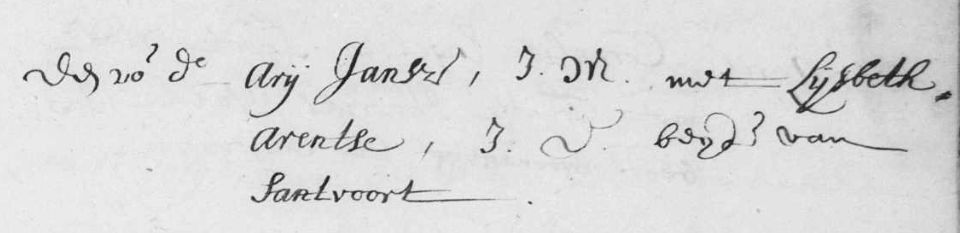 Den 20.' de Arij Jansz', J. M. met Lysbeth
Arentse, J. D. beyd.' van
Santvoort.